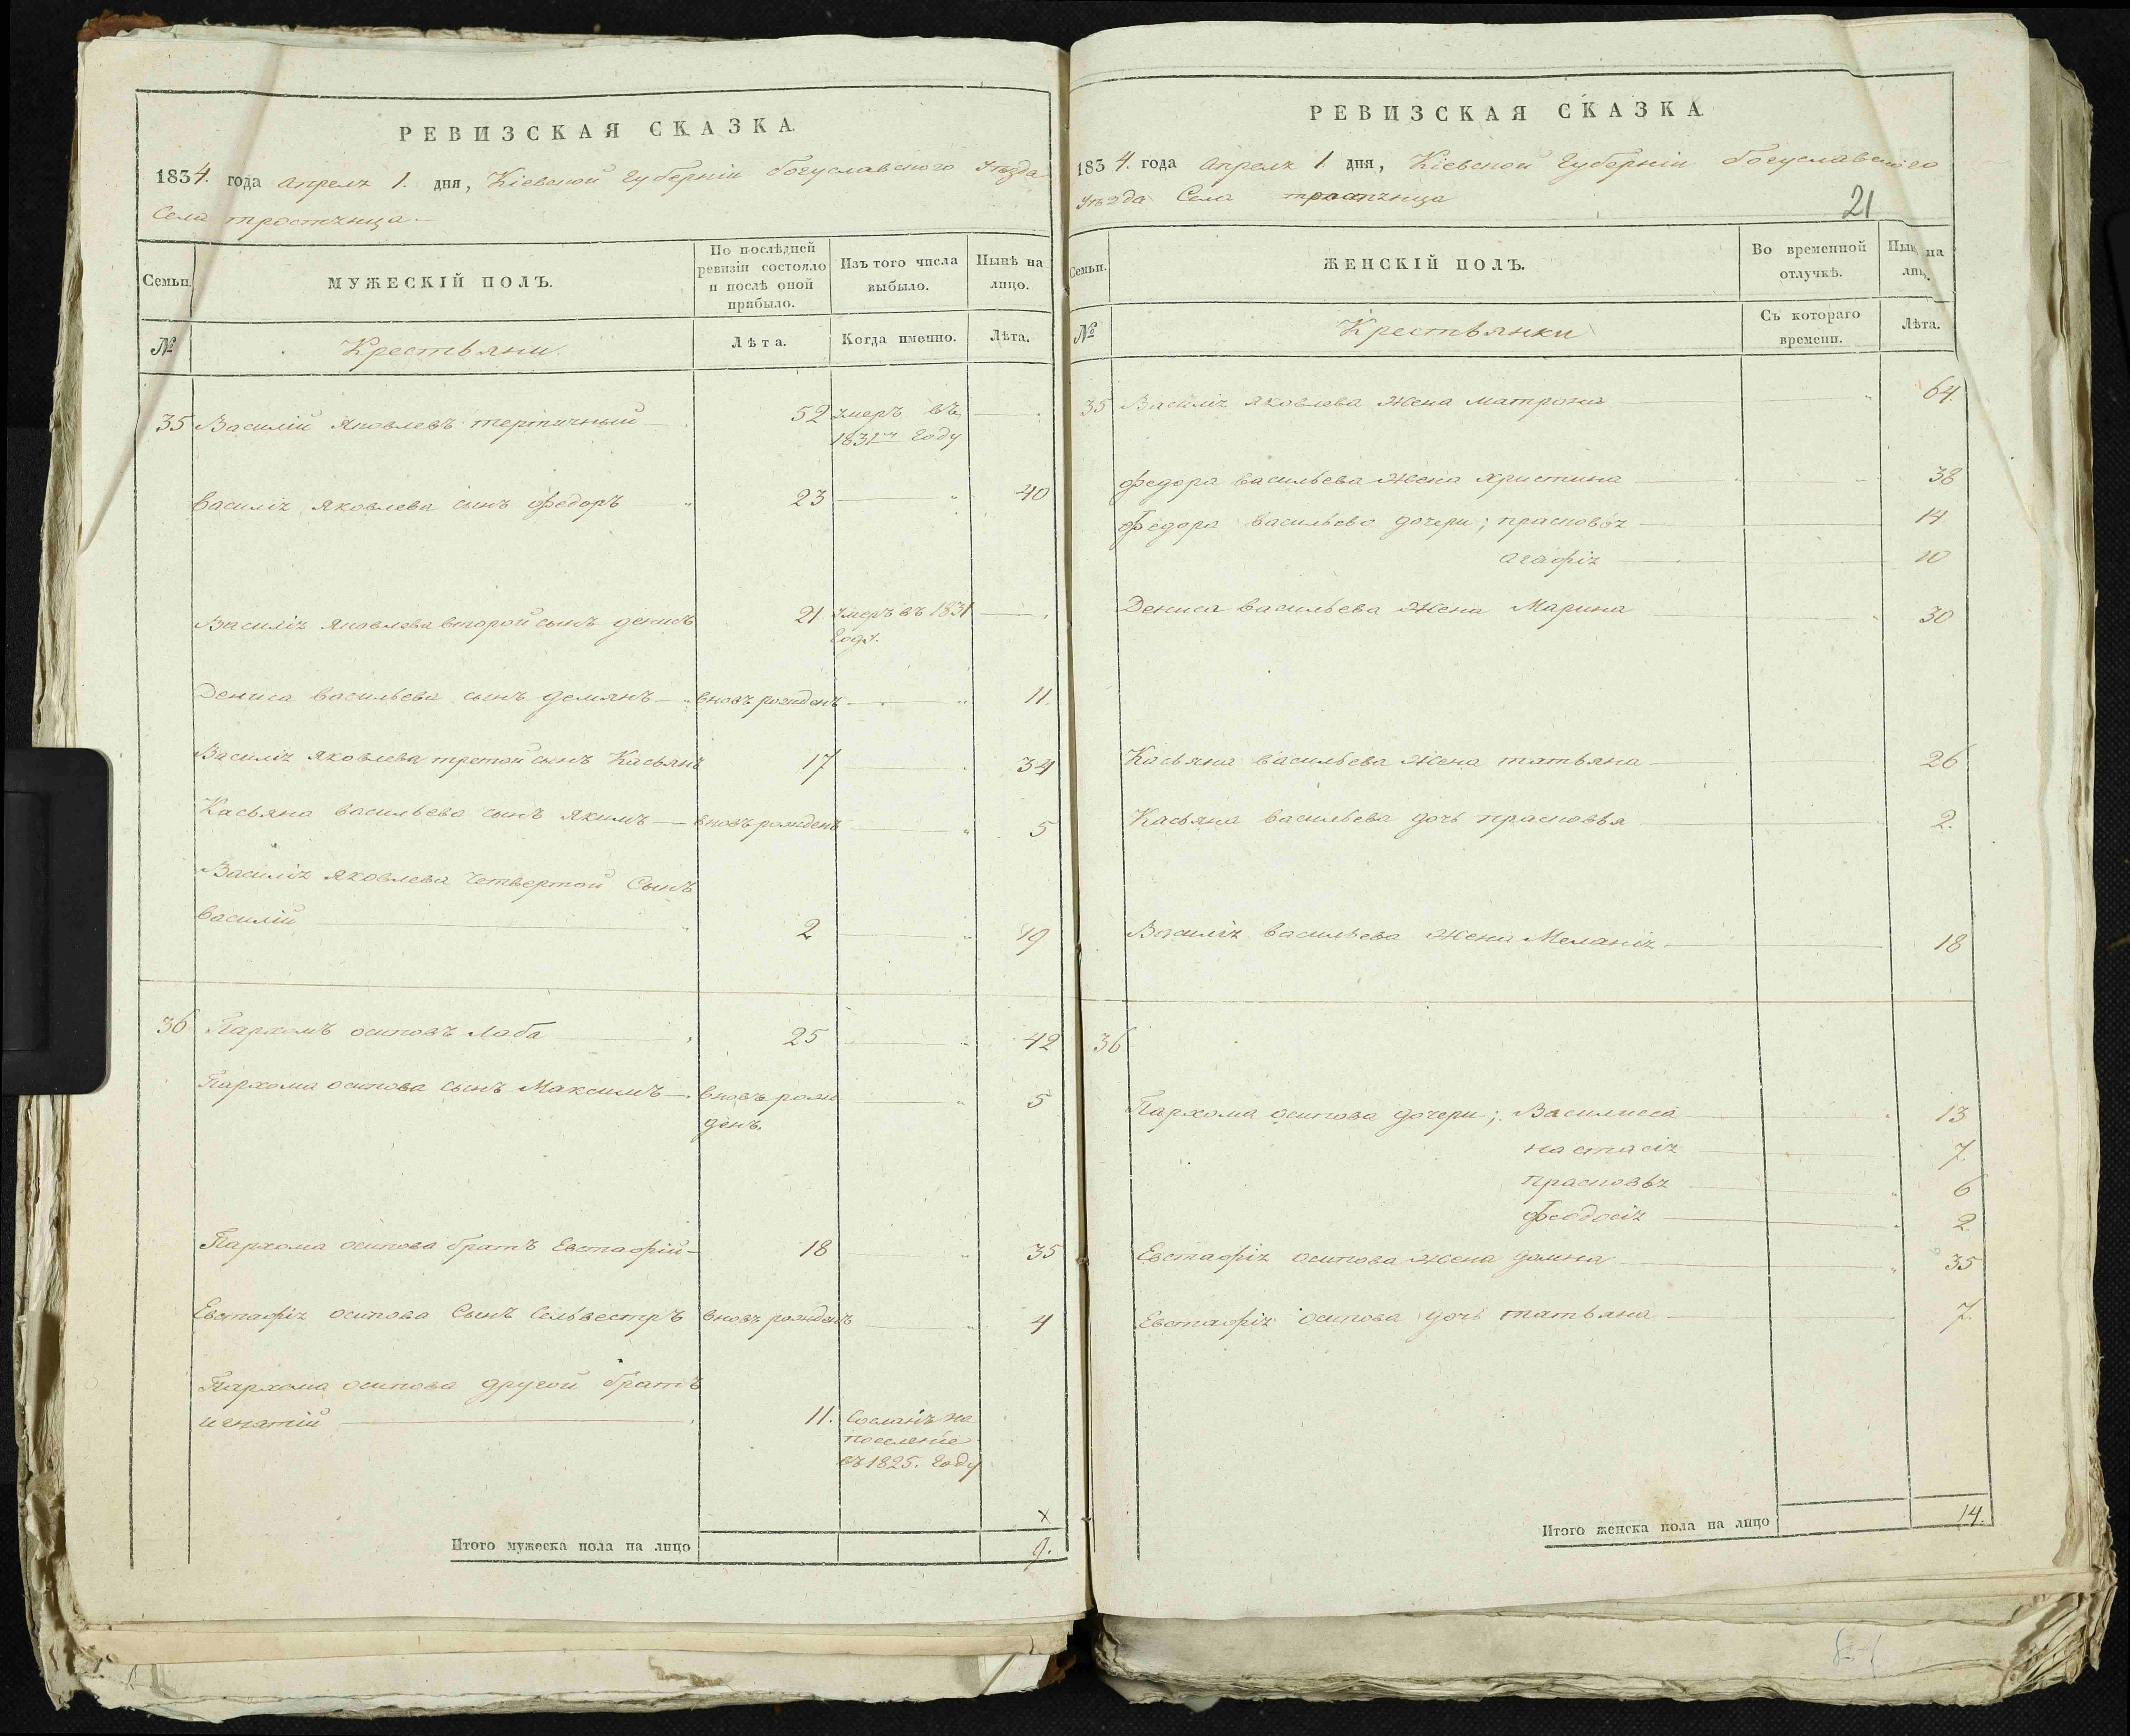 РЕВИЗСКАЯ СКАЗКА.
1834. года апреля 1. дня, Кіевской губерніи богуславского уѣзда
Села тростянца
Семьи. МУЖЕСКІЙ ПОЛЪ. По послѣдней ревизіи состояло и послѣ оной прибыло. Изъ того числа выбыло. Нынѣ на лицо.
№ Крестьяни Лѣта. Когда именно. Лѣта.
35 Василий Яковлевъ тертичный 52 умеръ въ
1831м году
Василія яковлева сынъ федоръ 23 40
Василія Яковлева второй сынъ денисъ 21 умеръ въ 1831
году.
Дениса васильева сынъ демянъ вновъ рожденъ 11.
Василія яковлева третой сынъ Касьянъ 17 34
Касьяна васильева сынъ якимъ вновъ рожденъ 5
Василія яковлева четвертой Сынъ
василій 2 19
36 Пархомъ осиповъ Лаба 25 42
Пархома осипова сынъ Максимъ вновъ рож 5
денъ.
Пархома осипова братъ Евстафій 18 35
Евстафія осипова Сынъ Сельвестръ вновъ рожденъ 4
Пархома осипова другой братъ
игнатій 11. Сосланъ на
поселение
въ 1825. году
х
Итого мужеска пола на лицо 9.
РЕВИЗСКАЯ СКАЗКА.
1834. года апреля 1. дня, Кіевской Губерніи богуславского
уѣзда Села тростянца
21
Семьи. ЖЕНСКІЙ ПОЛЪ. Во временной отлучкѣ. Нынѣ на лиц.
№ Крестьянки Съ котораго времени. Лѣта.
35 Василія яковлева жена матрона 64
федора васильева жена христина 38
федора васильева дочери; прасковья 14
агафія 10
Дениса васильева жена Марина 30
Касьяна васильева жена татьяна 26
Касьяна васильева дочь прасковья 2.
Василія васильева жена Меланія 18
36
Пархома осипова дочери; Василиса 13
настасія 7.
прасковья 6
феодосія 2
Евстафія осипова жена домна 35
Евстафія осипова дочь татьяна 7.
Итого женска пола на лицо 14.